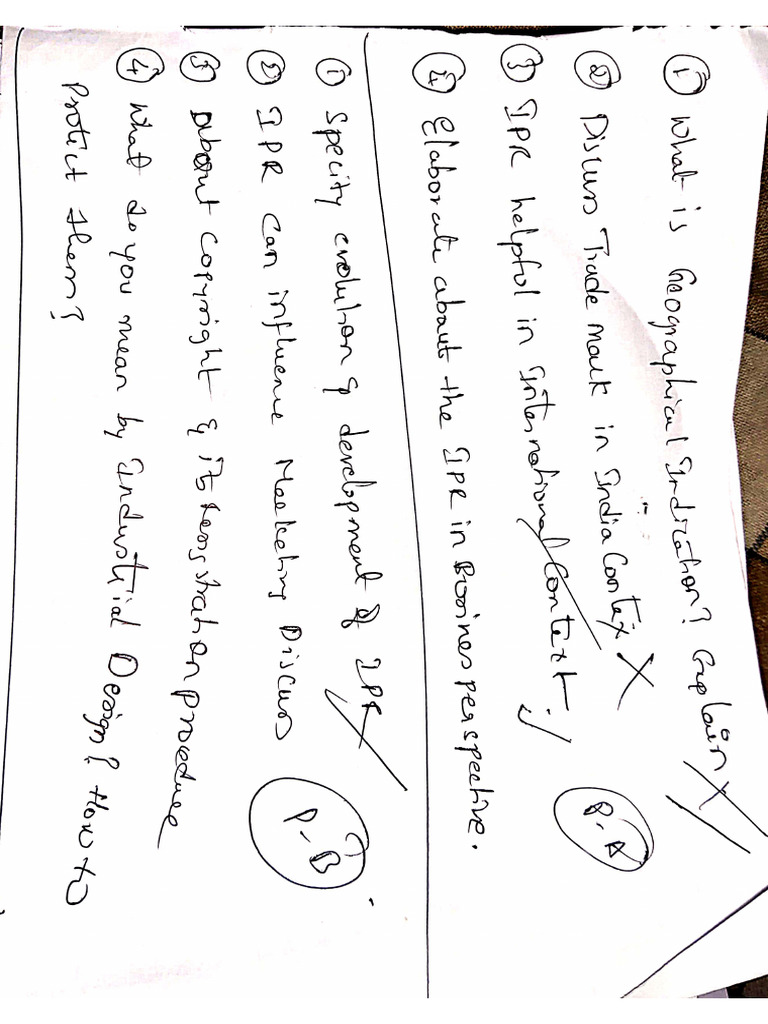 ① What is Geographical Indication? Explain
② Discuss Trade Mark in India Contex
③ IPR helpful in International Context
④ Elaborate about the IPR in Busines perspective.
P-A
① Specity evolution & development of IPR
② IPR can influence Marketing Discuss
③ about copyright & its registration procedure
④ What do you mean by Industrial Design? How to
Protict them?
P-B